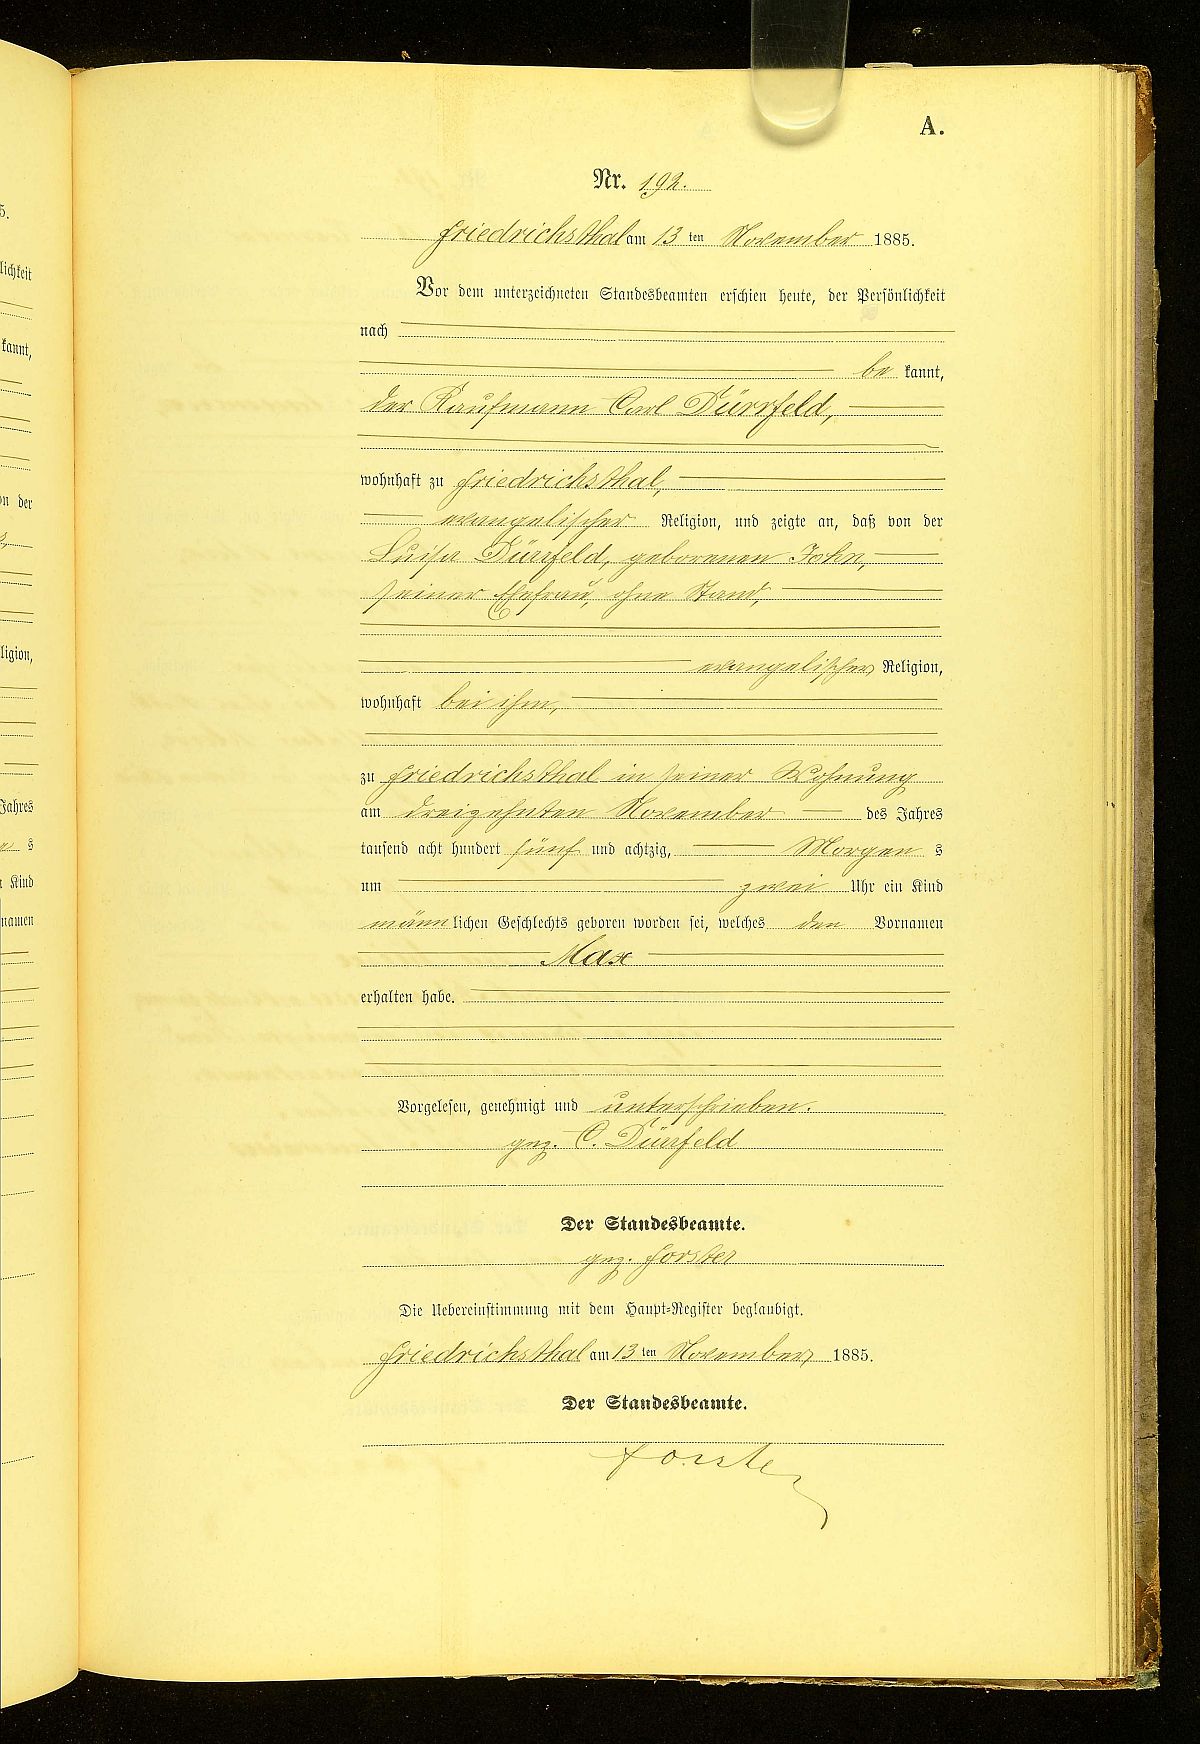 A.
Nr. 192.
Friedrichsthal am 13 ten November 1885.
Vor dem unterzeichneten Standesbeamten erschien heute, der Persönlichkeit
nach
be kannt,
der Kaufmann Carl Dürrfeld,
wohnhaft zu Friedrichsthal,
evangelischer Religion, und zeigte an, daß von der
Luise Dürrfeld, geborenen John,
seiner Ehefrau, ohne Stand,
evangelischer Religion,
wohnhaft bei ihm,
zu Friedrichsthal in seiner Wohnung
am dreizehnten November des Jahres
tausend acht hundert fünf und achtzig, Morgen s
um zwei Uhr ein Kind
männlichen Geschlechts geboren worden sei, welches den Vornamen
Max
erhalten habe.
Vorgelesen, genehmigt und unterschrieben.
gez. C. Dürrfeld
Der Standesbeamte.
gez. Forster
Die Uebereinstimmung mit dem Haupt-Register beglaubigt.
Friedrichsthal am 13 ten November 1885.
Der Standesbeamte.
Forster
5.
lichkeit
kannt,
on der
ligion,
Jahres
s
Kind
namen